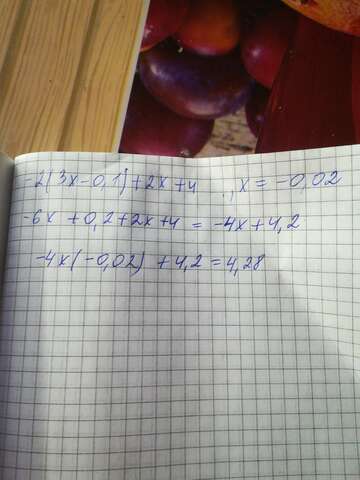 -2(3x-0,1)+2x+4 , x = -0,02
-6x +0,2+2x+4 = -4x+4,2
-4x(-0,02) +4,2=4,28